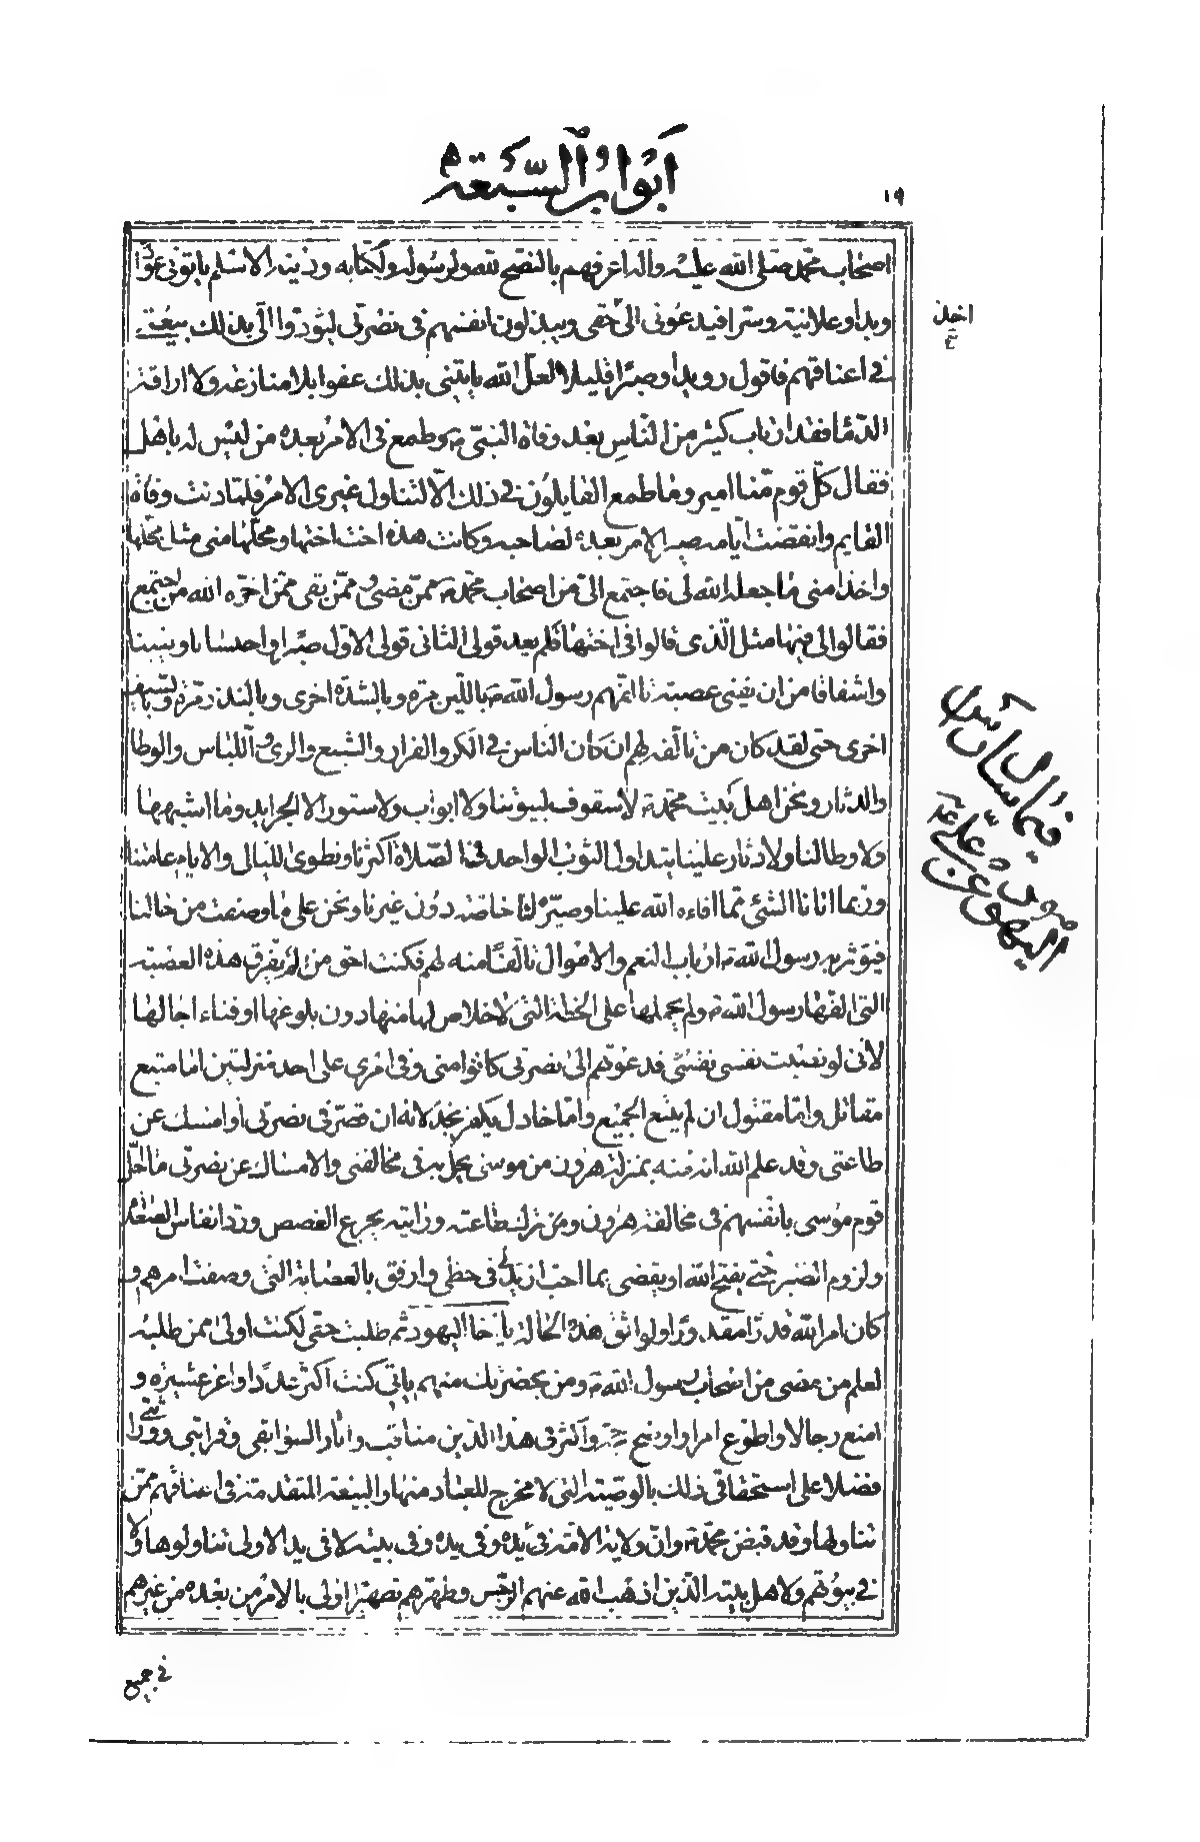 ابواب السبعة
١٩
اصحاب محمد صلى الله عليه واله اعرفهم بالنصح لله ولرسوله ولكتابه ودينه الاسلم ياتونى عودا
وبدا وعلانية وسرا فيدعونى الى حقى ويبذلون انفسهم فى نصرتى ليؤدوا الى بذلك بيعتى
فى اعناقهم فاقول رويدا وصبرا قليلا لعل الله ياتينى بذلك عفوا بلا منازعة ولا اراقة
الدما فقد ارتاب كثير من الناس بعد وفاة النبى ص وطمع فى الامر بعده من ليس له باهل
فقال كل قوم منا امير وما طمع القايلون فى ذلك الا لتناول غيرى الامر فلما دنت وفاة
القايم وانقضت ايامه صير الامر بعده لصاحبه وكانت هذه اخت اختها ومحلها منى مثل محلها
واخذا منى ما جعله الله لى فاجتمع الى من اصحاب محمد ص ممن مضى وممن بقى ممن اخره الله من اجتمع
فقالوا لى فيها مثل الذى قالوا فى اختها فلم يعد قولى الثانى قولى الاول صبرا واحتسابا ويقينا
واشفاقا من ان تفنى عصبة تالفهم رسول الله ص باللين مرة وبالشدة اخرى وبالنذر مرة وبالسيف
اخرى حتى لقد كان من تالفه لهم ان كان الناس فى الكر والفرار والشبع والرى واللباس والوطا
والدثار ونحن اهل بيت محمد ص لا سقوف لبيوتنا ولا ابواب ولا ستور الا الجرايد وما اشبهها
ولا وطا لنا ولا دثار علينا يتداول الثوب الواحد فى الصلاة اكثرنا ونطوى الليالى والايام عامتنا
وربما اتانا الشئ مما افاءه الله علينا وصيره لنا خاصة دون غيرنا ونحن على ما وصفت من حالنا
فيؤثر به رسول الله ص ارباب النعم والاموال تالفا منه لهم فكنت احق من لم يفرق هذه العصبة
التى الفها رسول الله ص ولم يحملها على الخطة التى لا خلاص لها منها دون بلوغها او فناء اجالها
لانى لو نصبت نفسى فدعوتهم الى نصرتى كانوا منى وفى امرى على احد منزلتين اما متبع
مقاتل واما مقتول ان لم يتبع الجميع واما خاذل يكفر بخذلانه ان قصر فى نصرتى او امسك عن
طاعتى وقد علم الله انى منه بمنزلة هرون من موسى يحل به فى مخالفتى والامساك عن نصرتى ما احل
قوم موسى بانفسهم فى مخالفة هرون وترك طاعته ورايت تجرع الغصص ورد انفاس الصعداء
ولزوم الصبر حتى يفتح الله او يقضى بما احب ازيد لى فى حظى وارفق بالعصابة التى وصفت امرهم و
كان امر الله قدرا مقدورا ولو اتق هذه الحالة يا اخا اليهود ثم طلبت حقى لكنت اولى ممن طلبه
لعلم من مضى من اصحاب رسول الله ص ومن بحضرتك منهم بانى كنت اكثر عددا واعز عشيرة و
امنع رجالا واطوع امرا واوضح حجة واكثر فى هذا الدين مناقب واثارا لسوابقى وقرابتى ووراثتى
فضلا على استحقاقى ذلك بالوصية التى لا مخرج للعباد منها والبيعة المتقدمة فى اعناقهم ممن
تناولها وقد قبض محمد ص وان ولاية الامة فى يده وفى بيته لا فى يد الاولى تناولوها ولا
فى بيوتهم ولاهل بيته الذين اذهب الله عنهم الرجس وطهرهم تطهيرا اولى بالامر من بعده من غيرهم
فى جميع
فى سؤال راس
اليهود عن على ع